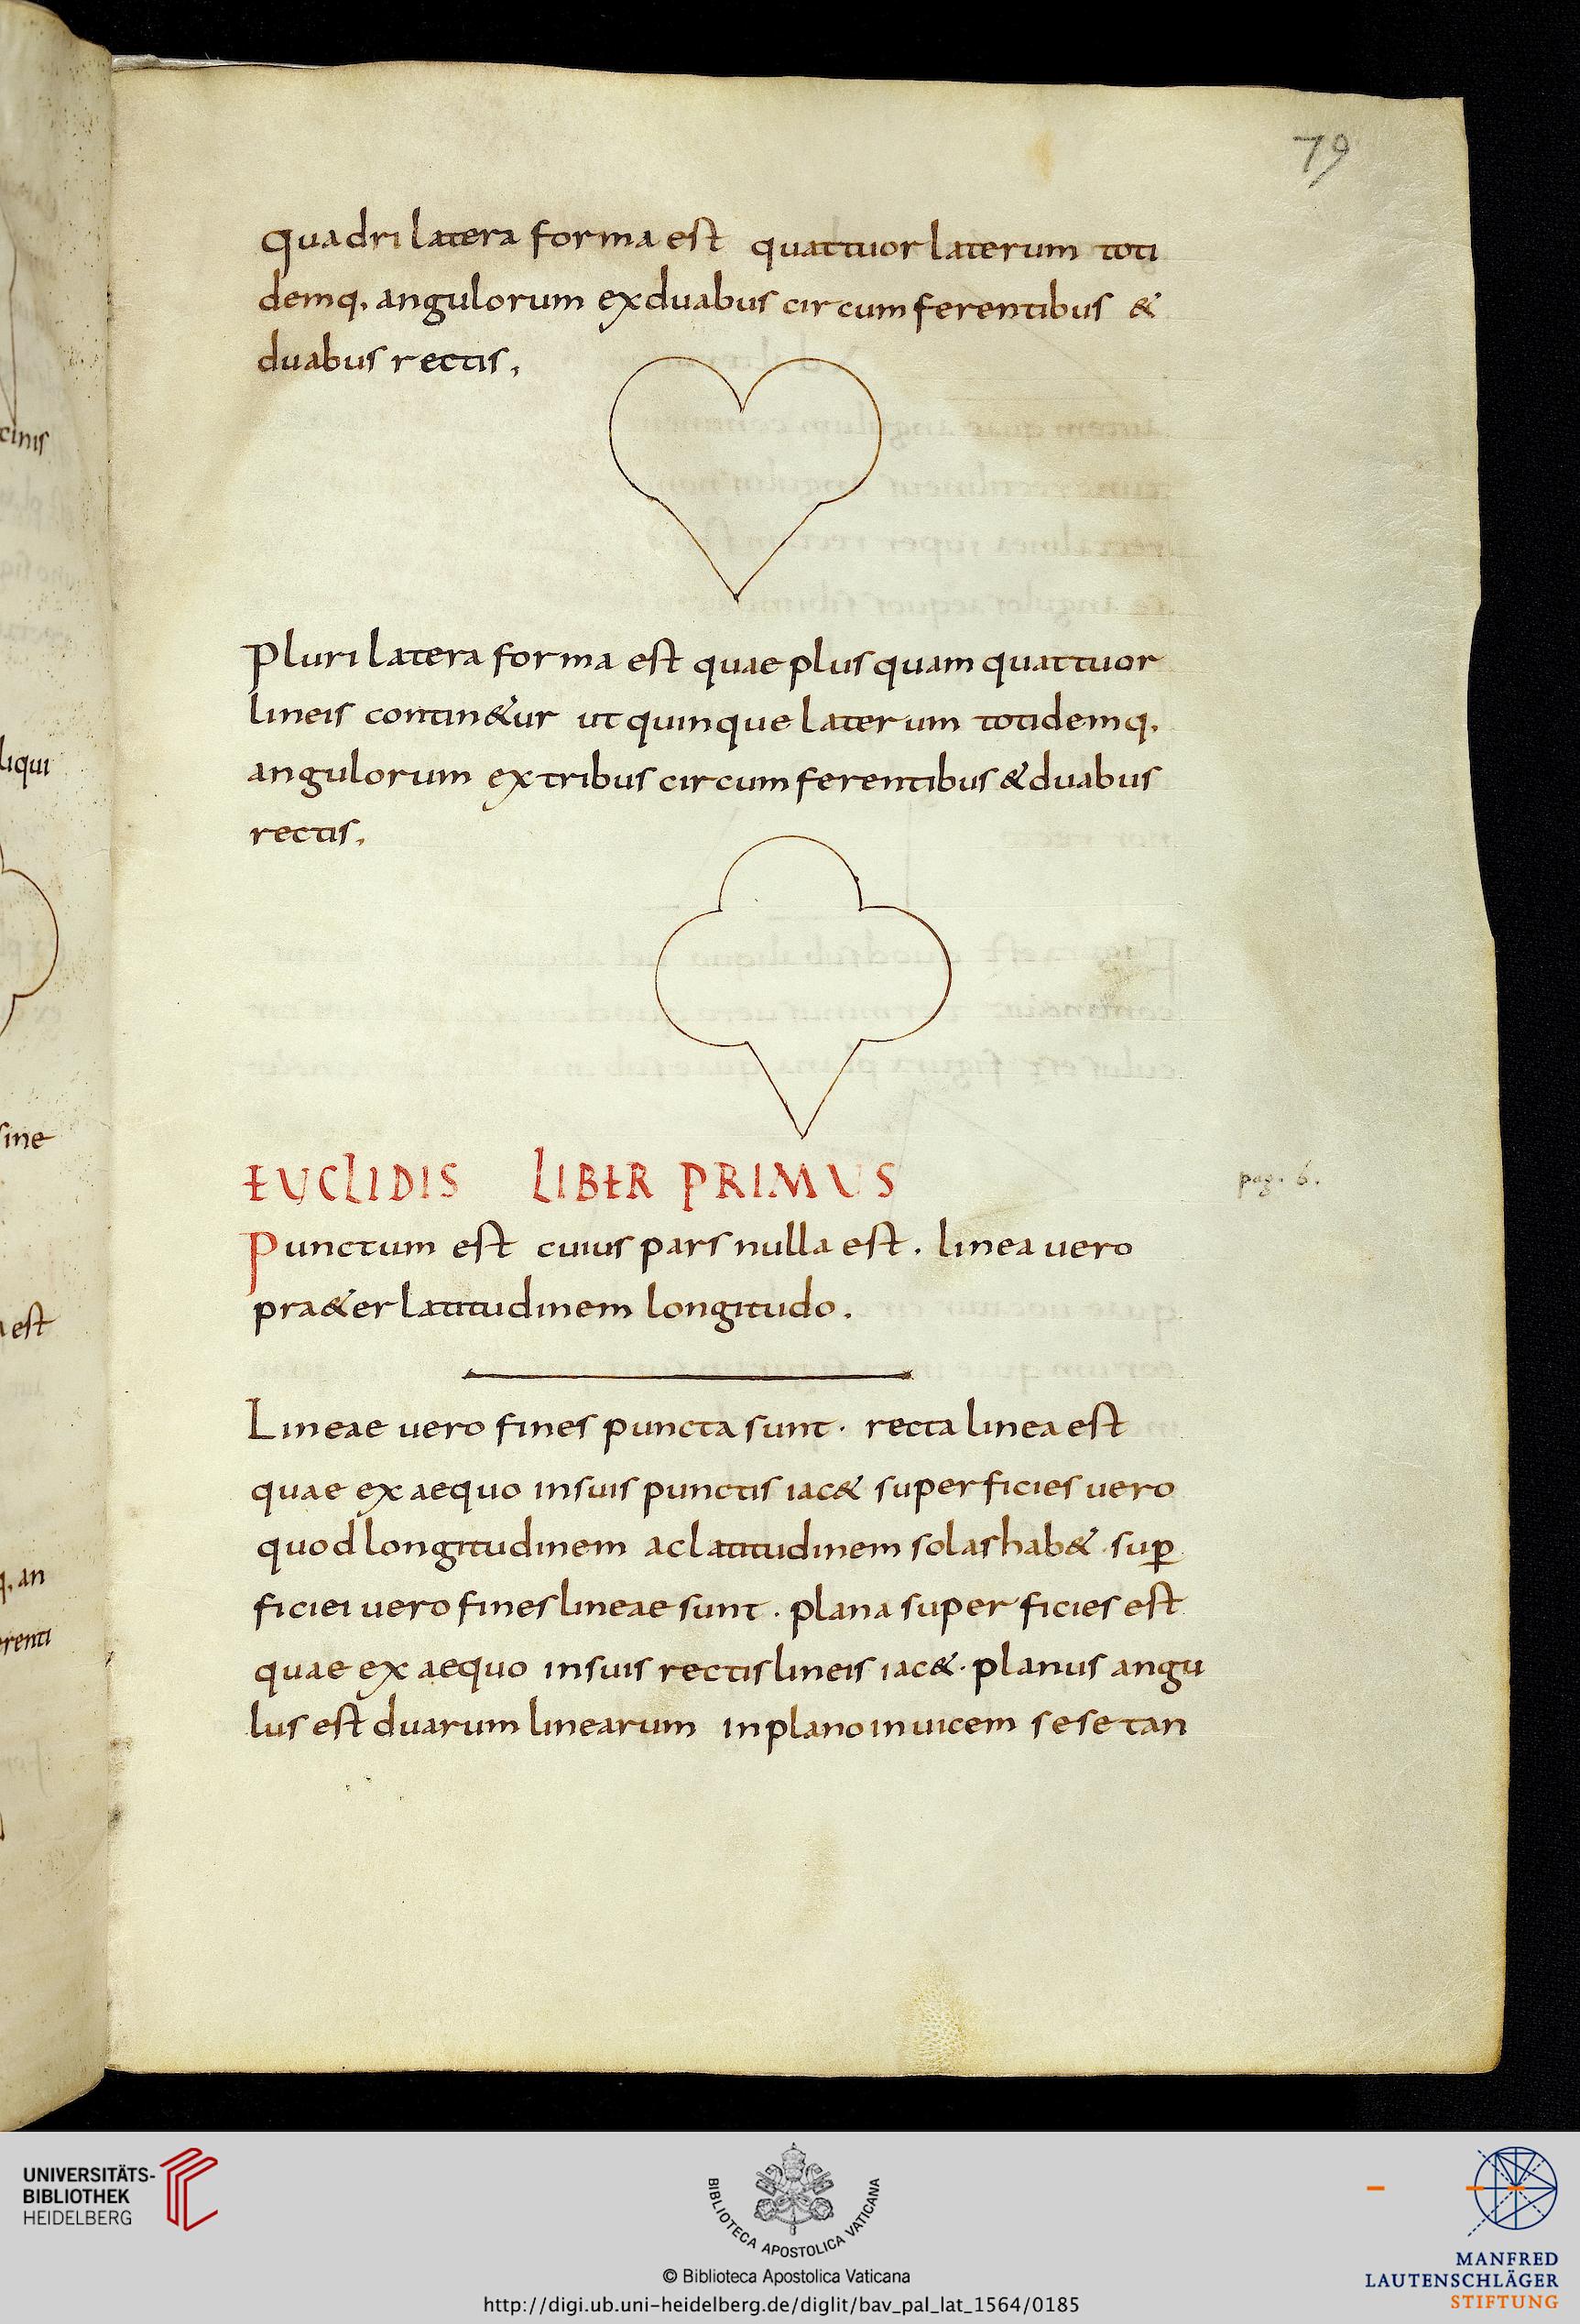 79
quadrilatera forma est quattuor laterum toti
demq. angulorum ex duabus circumferentibus &
duabus rectis,
Plurilatera forma est quae plus quam quattuor
lineis contin&ur ut quinque laterum totidemq.
angulorum ex tribus circumferentibus & duabus
rectis.
EUCLIDIS LIBER PRIMUS
pag. 6.
Punctum est cuius pars nulla est. linea vero
pra&er latitudinem longitudo.
Lineae vero fines puncta sunt. recta linea est
quae ex aequo in suis punctis iac& superficies vero
quod longitudinem ac latitudinem solas hab& sup̲
ficiei vero fines lineae sunt. plana superficies est
quae ex aequo in suis rectis lineis iac&. planus angu
lus est duarum linearum in plano invicem sese tan
cinis
liqui
sine
est
q. an
erenti
UNIVERSITÄTS-
BIBLIOTHEK
HEIDELBERG
BIBLIOTECA APOSTOLICA VATICANA
© Biblioteca Apostolica Vaticana
http://digi.ub.uni-heidelberg.de/diglit/bav_pal_lat_1564/0185
MANFRED
LAUTENSCHLÄGER
STIFTUNG